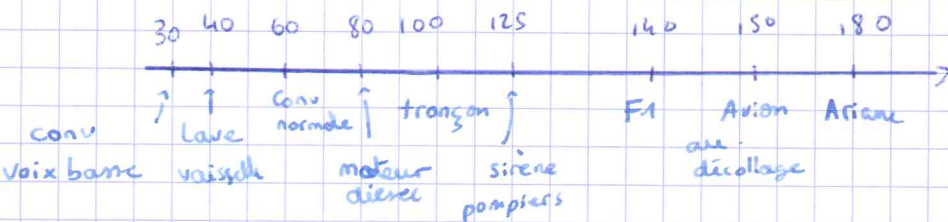 30 40 60 80 100 125 140 150 180
conv voix basse
Lave vaisselle
Conv normale
moteur diesel
tronçon
sirène pompiers
F1
Avion au décollage
Ariane